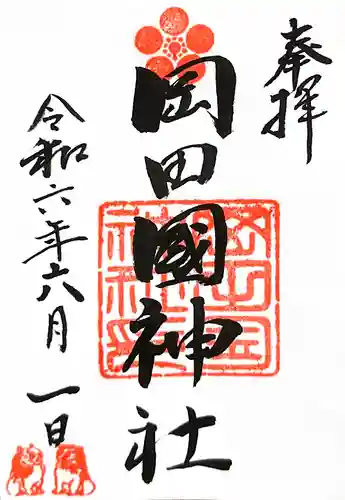 奉拝
岡田國神社
令和六年六月一日